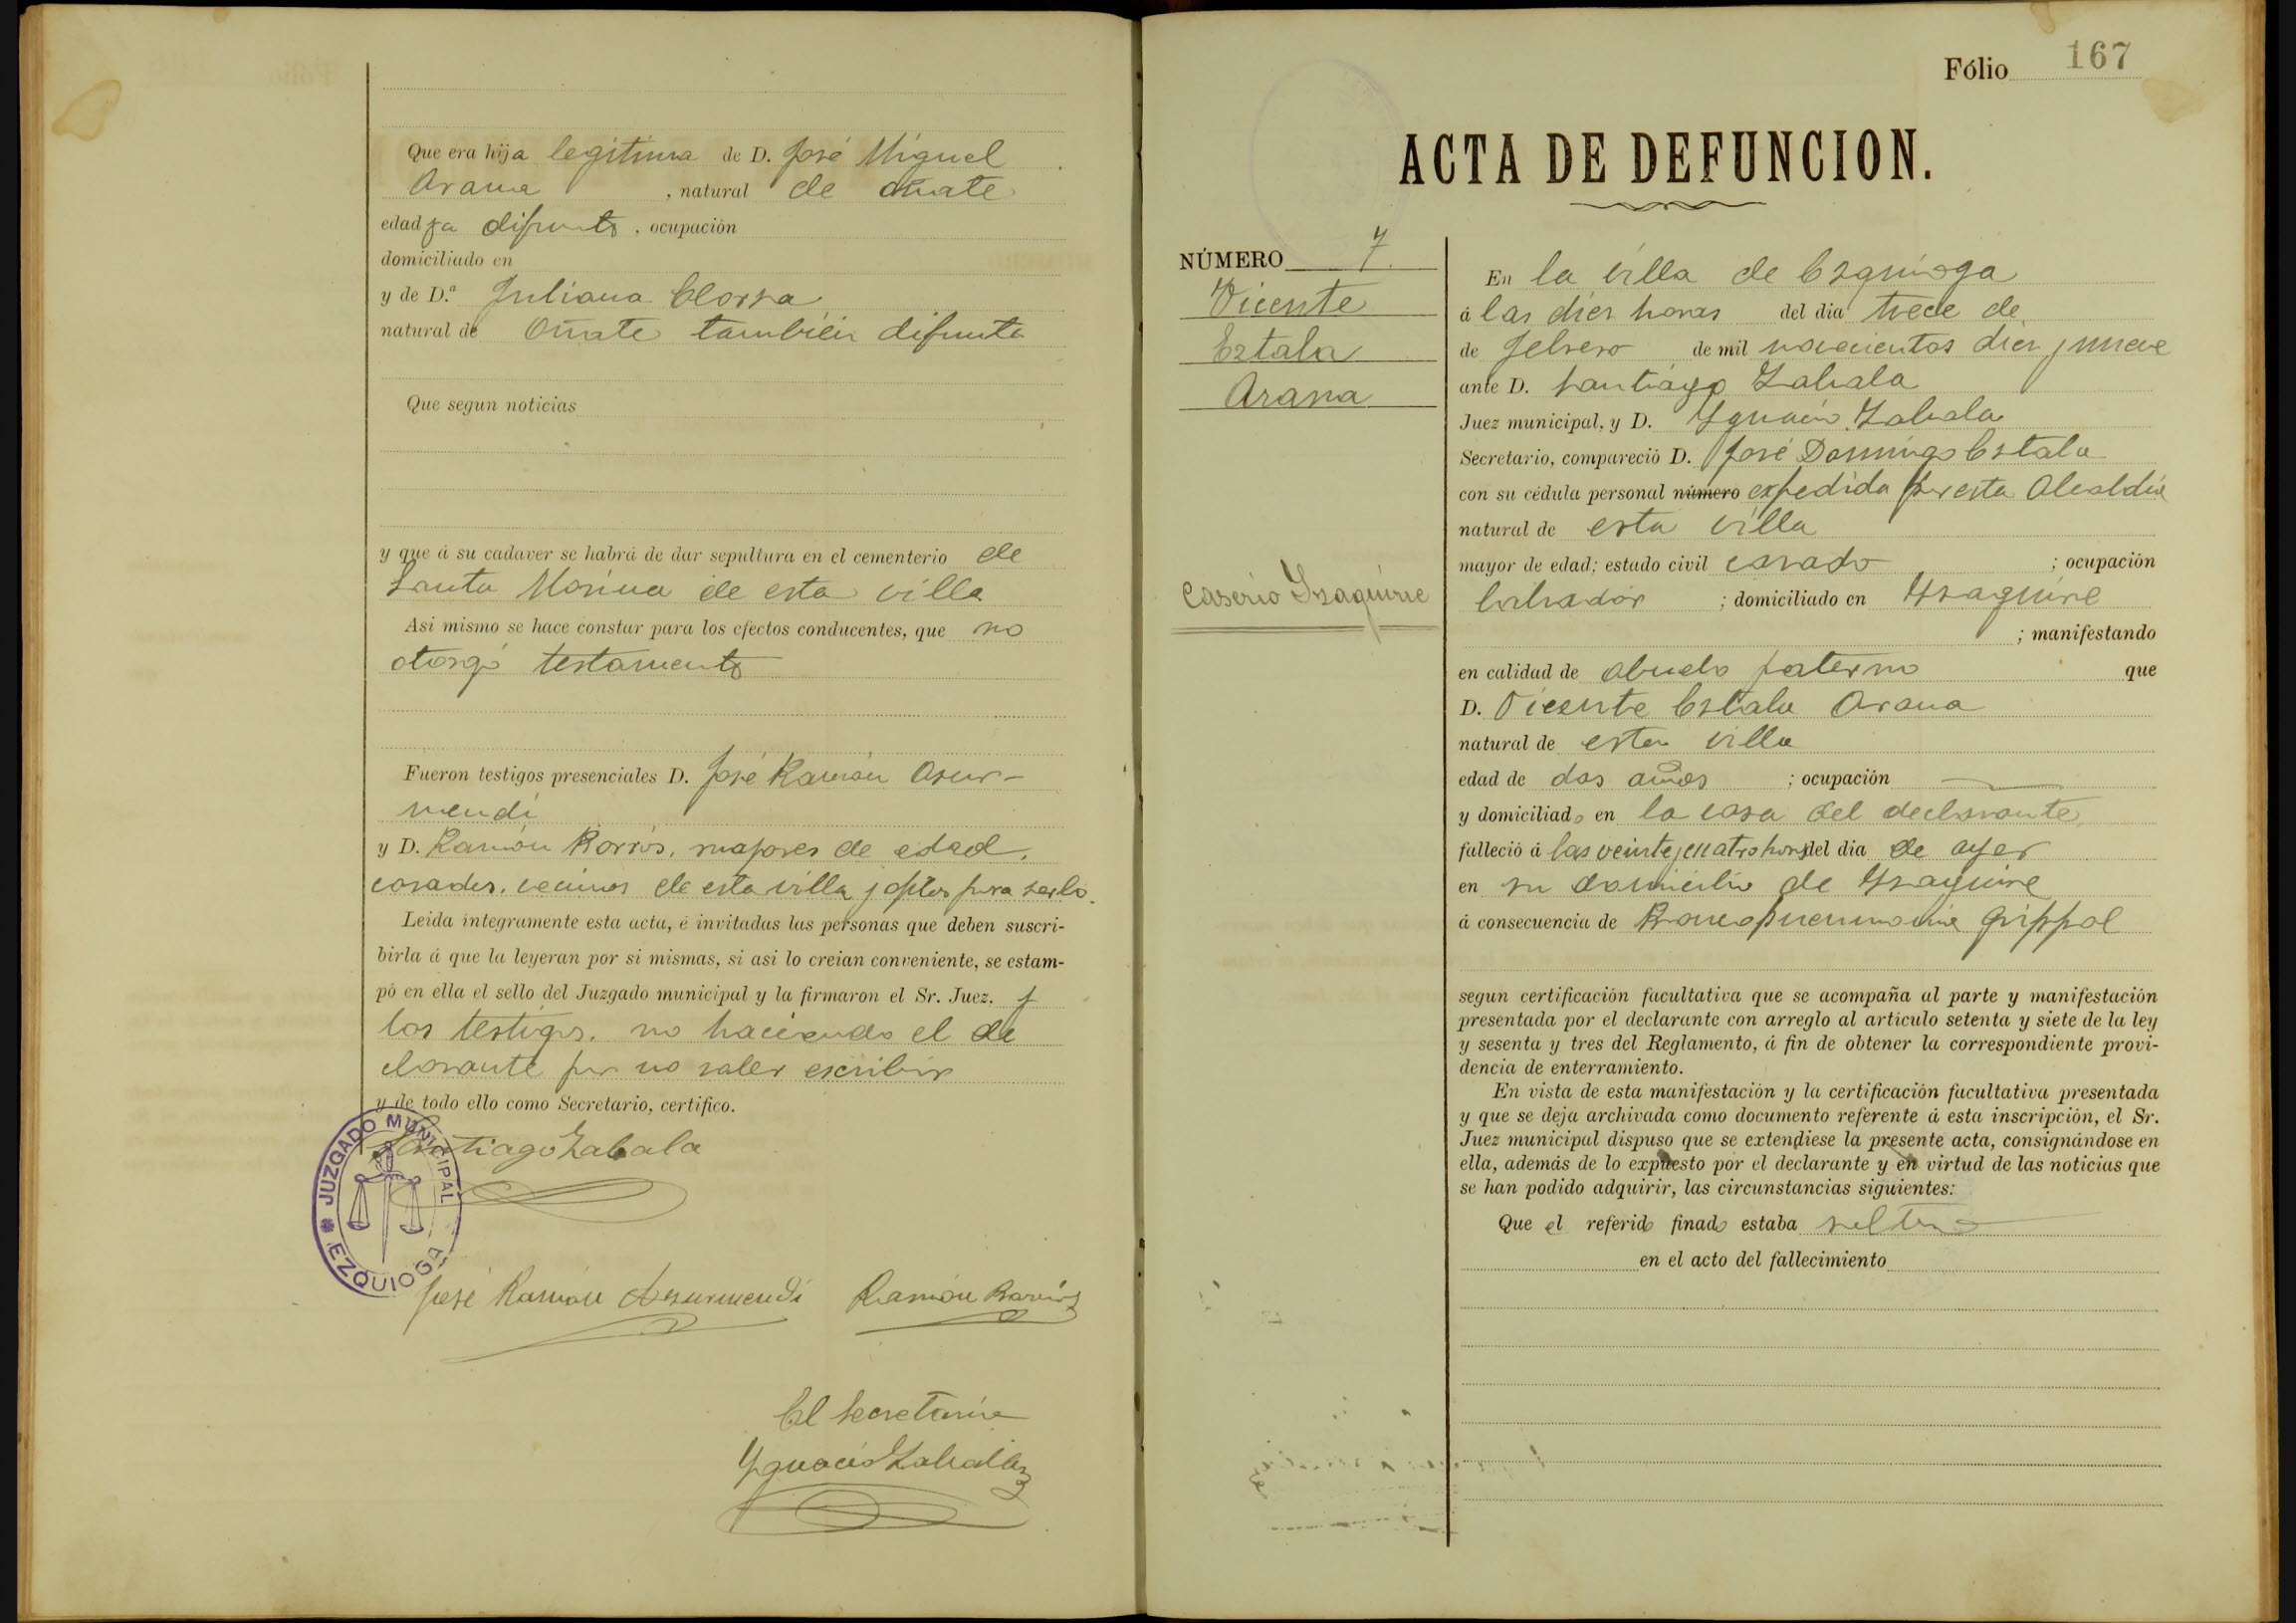 Que era hija legitima de D. José Miguel
Arana , natural de Oñate
edad ya difunto , ocupación
domiciliado en
y de D.ª Juliana Elorza
natural de Oñate también difunta
Que segun noticias
y que á su cadaver se habrá de dar sepultura en el cementerio de
Santa Marina de esta villa
Asi mismo se hace constar para los efectos conducentes, que no
otorgó testamento
Fueron testigos presenciales D. José Ramón Asur-
mendi
y D. Ramón Barrios, mayores de edad,
casados, vecinos de esta villa y aptos para serlo.
Leida integramente esta acta, é invitadas las personas que deben suscri-
birla á que la leyeran por si mismas, si asi lo creian conveniente, se estam-
pó en ella el sello del Juzgado municipal y la firmaron el Sr. Juez. y
los testigos, no haciendo el de
clarante por no saber escribir
y de todo ello como Secretario, certifico.
Santiago Zabala
JUZGADO MUNICIPAL
EZQUIOGA
José Ramón Asurmendi Ramón Barrios
El Secretario
Ygnacio Zabala
Fólio 167
ACTA DE DEFUNCION.
NÚMERO 7.
Vicente
Eztala
Arana
Caserio Yzaguirre
En la villa de Ezquioga
á las diez horas del dia trece de
de febrero de mil novecientos diez y nueve
ante D. Santiago Zabala
Juez municipal, y D. Ygnacio Zabala
Secretario, compareció D. José Domingo Eztala
con su cédula personal número expedida por esta Alcaldía
natural de esta villa
mayor de edad; estado civil casado ; ocupación
labrador ; domiciliado en Yzaguirre
; manifestando
en calidad de abuelo paterno que
D. Vicente Eztala Arana
natural de esta villa
edad de dos años ; ocupación
y domiciliado en la casa del declarante
falleció á las veinte y cuatro horas del dia de ayer
en su domicilio de Yzaguirre
á consecuencia de Bronco pneumonia grippal
segun certificación facultativa que se acompaña al parte y manifestación
presentada por el declarante con arreglo al articulo setenta y siete de la ley
y sesenta y tres del Reglamento, á fin de obtener la correspondiente provi-
dencia de enterramiento.
En vista de esta manifestación y la certificación facultativa presentada
y que se deja archivada como documento referente á esta inscripción, el Sr.
Juez municipal dispuso que se extendiese la presente acta, consignándose en
ella, además de lo expuesto por el declarante y en virtud de las noticias que
se han podido adquirir, las circunstancias siguientes:
Que el referido finado estaba soltero
en el acto del fallecimiento